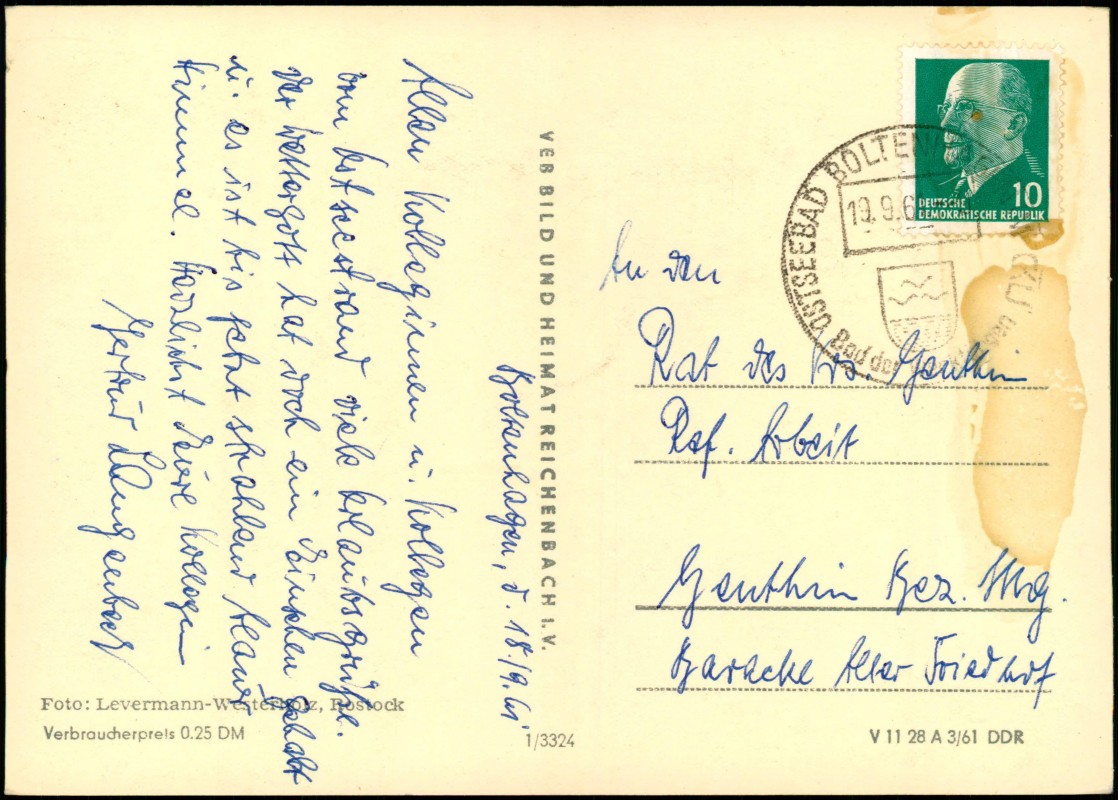 Boltenhagen, d. 18./9.61
Allen Kolleginnen u. Kollegen
vom Ostseestrand viele Urlaubsgrüße.
Der Wettergott hat doch ein Einsehen gehabt
u. es ist bis jetzt strahlend blauer
Himmel. Herzlichst Eure Kollegin
Gertrud Langenbeck
VEB BILD UND HEIMAT REICHENBACH I.V.
Foto: Levermann-Westerholz, Rostock
Verbraucherpreis 0.25 DM
1/3324
DEUTSCHE
DEMOKRATISCHE REPUBLIK
10
OSTSEEBAD BOLTENHAGEN
19.9.6
Bad der
An den
Rat des Krs. Genthin
Ref. Arbeit
Genthin Bez. Mdg.
Baracke Alter Friedhof
V 11 28 A 3/61 DDR